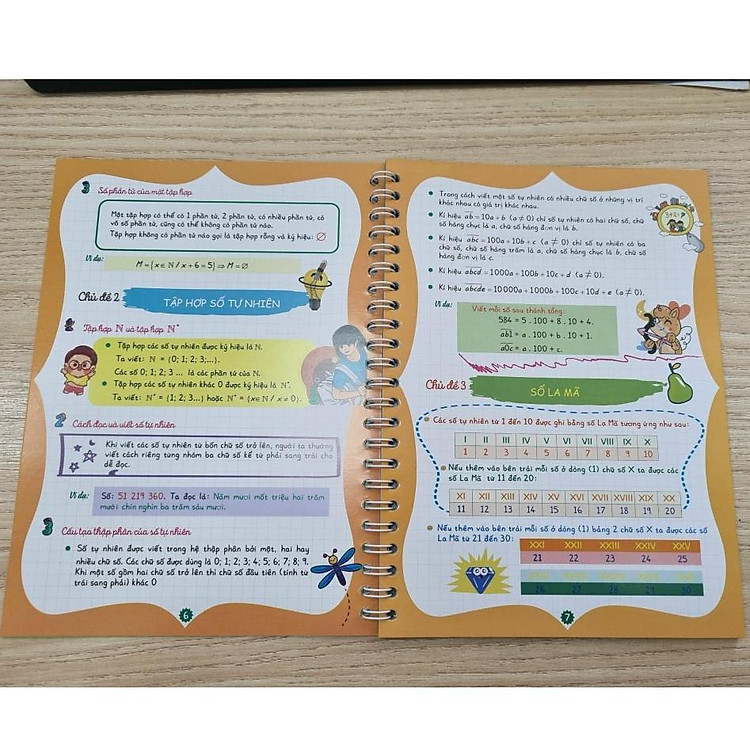 3 Số phần tử của một tập hợp
Một tập hợp có thể có 1 phần tử, 2 phần tử, có nhiều phần tử, có
vô số phần tử, cũng có thể không có phần tử nào.
Tập hợp không có phần tử nào gọi là tập hợp rỗng và ký hiệu: ∅
Ví dụ:
M = {x ∈ ℕ / x + 6 = 5} ⇒ M = ∅
Chủ đề 2
TẬP HỢP SỐ TỰ NHIÊN
1 Tập hợp ℕ và tập hợp ℕ*
• Tập hợp các số tự nhiên được ký hiệu là ℕ.
Ta viết: ℕ = {0; 1; 2; 3;...}.
Các số 0; 1; 2; 3 ... là các phần tử của ℕ.
• Tập hợp các số tự nhiên khác 0 được ký hiệu là ℕ*.
Ta viết: ℕ* = {1; 2; 3...} hoặc ℕ* = {x ∈ ℕ / x ≠ 0}.
2 Cách đọc và viết số tự nhiên
Khi viết các số tự nhiên từ bốn chữ số trở lên, người ta thường
viết cách riêng từng nhóm ba chữ số kể từ phải sang trái cho
dễ đọc.
Ví dụ:
Số: 51 219 360. Ta đọc là: Năm mươi mốt triệu hai trăm
mười chín nghìn ba trăm sáu mươi.
3 Cấu tạo thập phân của số tự nhiên
• Số tự nhiên được viết trong hệ thập phân bởi một, hai hay
nhiều chữ số. Các chữ số được dùng là 0; 1; 2; 3; 4; 5; 6; 7; 8; 9.
Khi một số gồm hai chữ số trở lên thì chữ số đầu tiên (tính từ
trái sang phải) khác 0
6
• Trong cách viết một số tự nhiên có nhiều chữ số ở những vị trí
khác nhau có giá trị khác nhau.
• Kí hiệu ab = 10a + b (a ≠ 0) chỉ số tự nhiên có hai chữ số, chữ
số hàng chục là a, chữ số hàng đơn vị là b.
• Kí hiệu abc = 100a + 10b + c (a ≠ 0) chỉ số tự nhiên có ba
chữ số, chữ số hàng trăm là a, chữ số hàng chục là b, chữ số
hàng đơn vị là c.
• Kí hiệu abcd = 1000a + 100b + 10c + d (a ≠ 0).
• Kí hiệu abcde = 10000a + 1000b + 100c + 10d + e (a ≠ 0).
Ví dụ:
Viết mỗi số sau thành tổng:
584 = 5 . 100 + 8 . 10 + 4.
ab1 = a . 100 + b . 10 + 1.
a0c = a . 100 + c.
Chủ đề 3
SỐ LA MÃ
• Các số tự nhiên từ 1 đến 10 được ghi bằng số La Mã tương ứng như sau:
I II III IV V VI VII VIII IX X
1 2 3 4 5 6 7 8 9 10
• Nếu thêm vào bên trái mỗi số ở dòng (1) chữ số X ta được các
số La Mã từ 11 đến 20:
XI XII XIII XIV XV XVI XVII XVIII XIX XX
11 12 13 14 15 16 17 18 19 20
• Nếu thêm vào bên trái mỗi số ở dòng (1) bằng 2 chữ số X ta được các số
La Mã từ 21 đến 30:
XXI XXII XXIII XXIV XXV
21 22 23 24 25
26 27 28 29 30
7